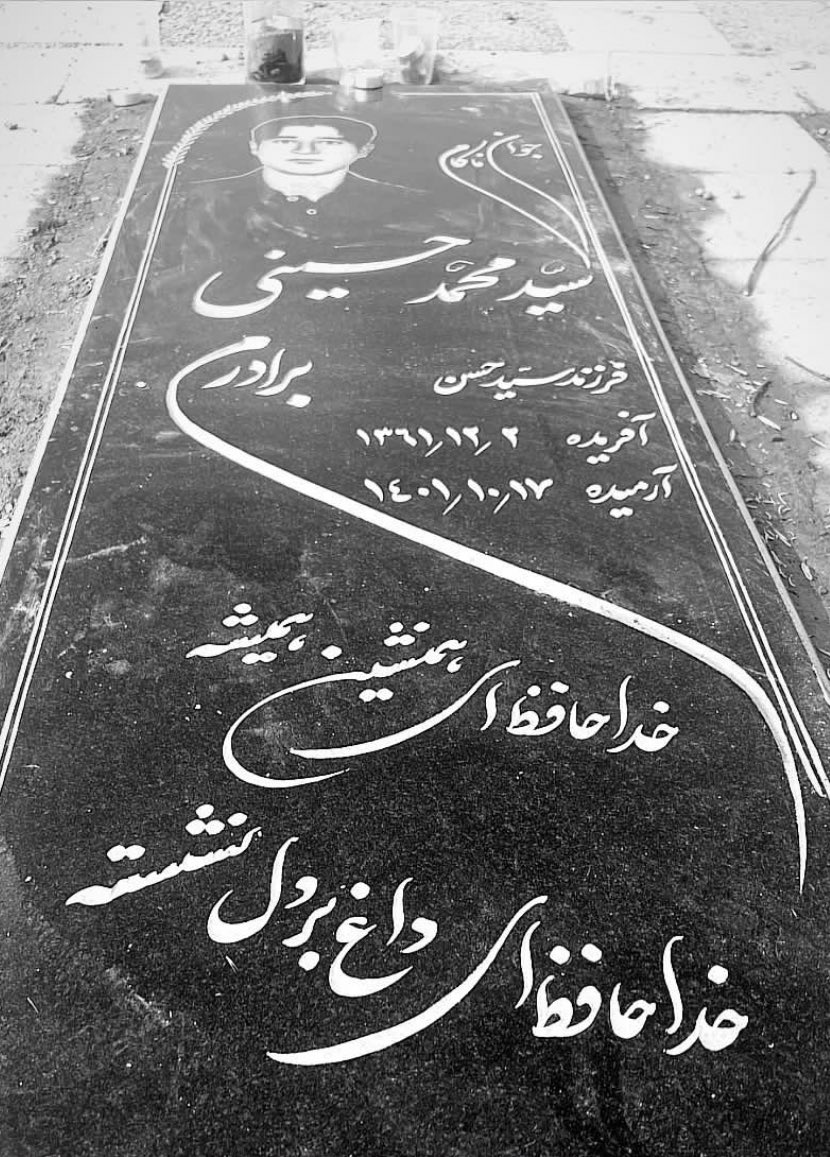 جوان ناکام
سیّد محمّد حسینی
فرزند سیّد حسن
برادرم
آفریده ۱۳٦۱٫۱۲٫۲
آرمیده ۱٤۰۱٫۱۰٫۱۷
خداحافظ ای همنشین همیشه
خداحافظ ای داغ بر دل نشسته